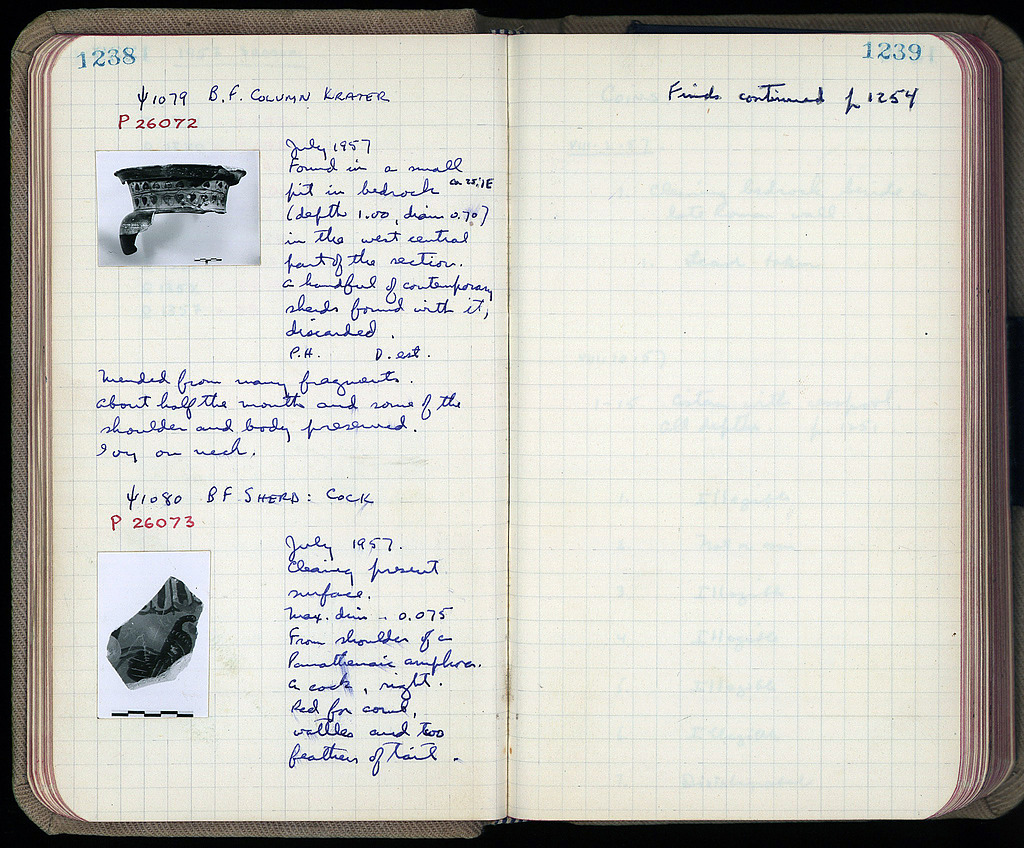 1238
Ψ1079 B.F. COLUMN KRATER
P 26072
July 1957
Found in a small
pit in bedrock ca 25/IE
(depth 1.00, diam 0.70)
in the west central
part of the section.
a handful of contemporary
sherds found with it,
discarded.
P.H. D. est.
Mended from many fragments.
about half the mouth and some of the
shoulder and body preserved.
Ivy on neck.
Ψ1080 BF SHERD: COCK
P 26073
July 1957.
Clearing present
surface.
Max. dim. 0.075
From shoulder of a
Panathenaic amphora.
a cock, right.
Red for comb,
wattles and two
feathers of tail.
1239
Finds continued p 1254